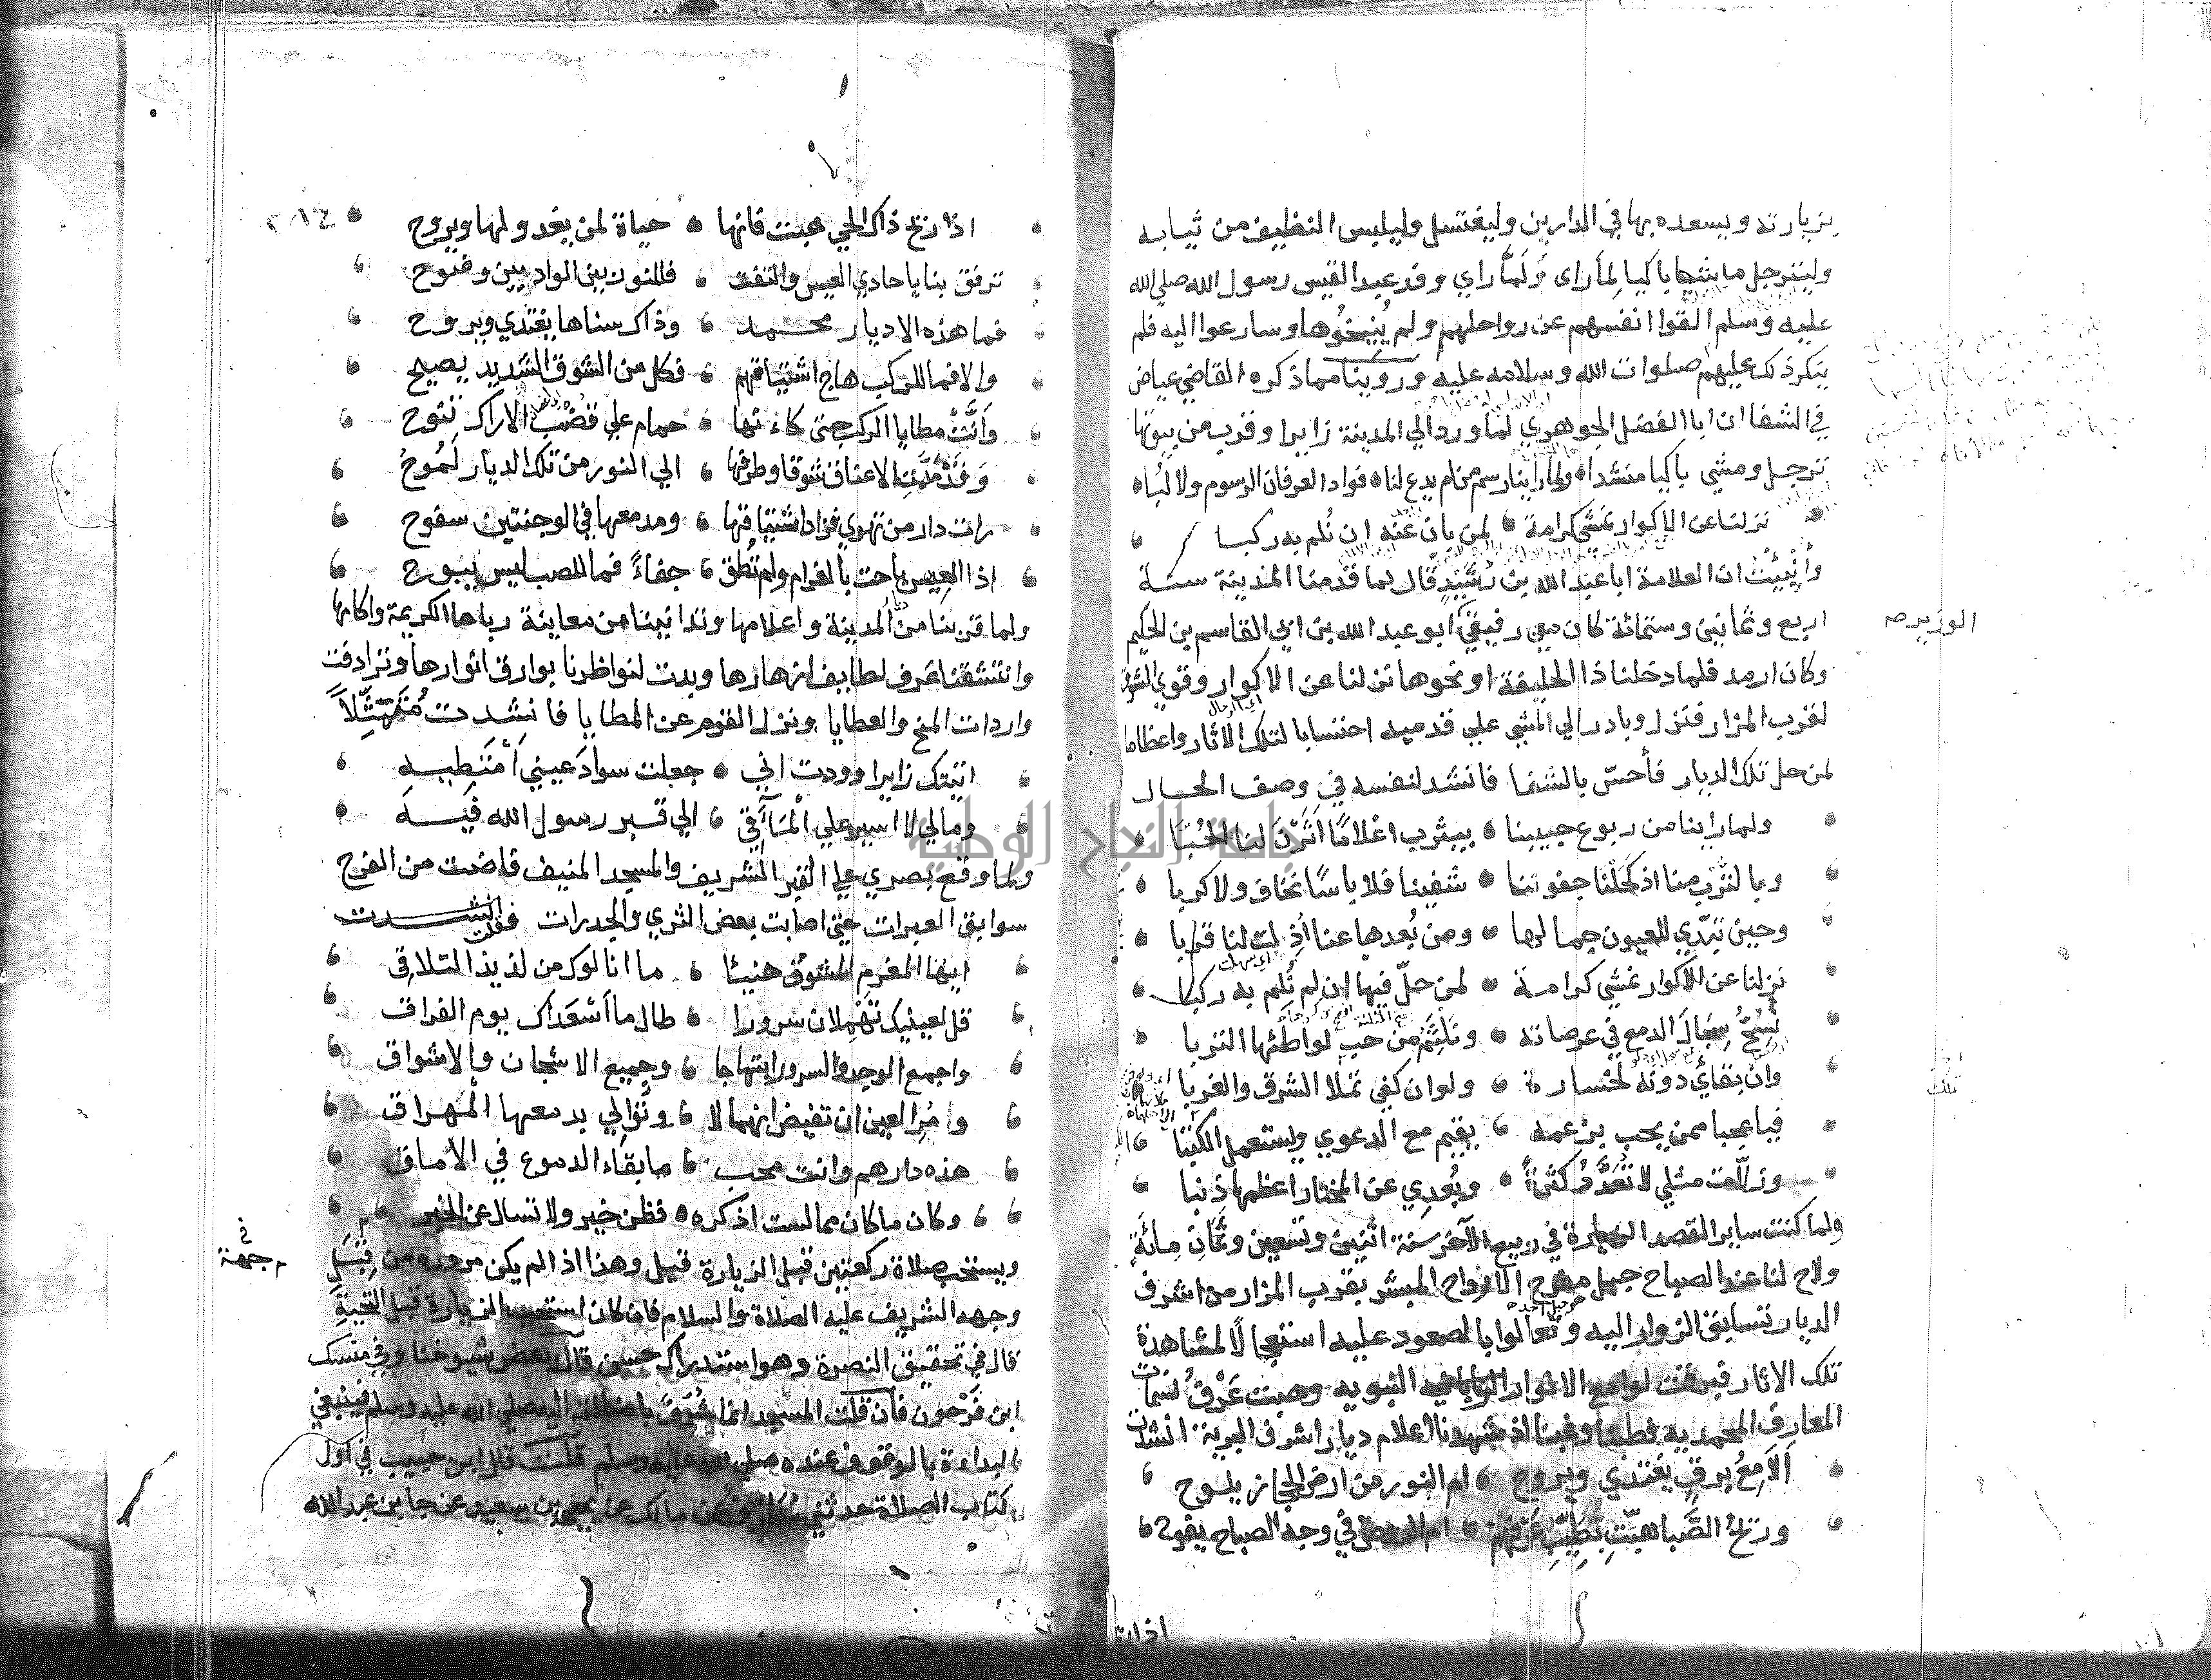 بزيارته ويسعده بها في الدارين وليغتسل وليلبس النظيف من ثيابه
وليترجل ماشيا باكيا لما راى ولما راي وفد عبد القيس رسول الله صلى الله
عليه وسلم القوا انفسهم عن رواحلهم ولم ينيخوها وسارعوا اليه فلم
ينكر ذلك عليهم صلوات الله وسلامه عليه وروينا مما ذكره القاضي عياض
في الشفا ان ابا الفضل الجوهري لما ورد الي المدينة زايرا وقرب من بيوتها
ترجل ومشي باكيا منشدا ولما راينا رسم من لم يدع لنا فوادا لعرفان الرسوم ولا لبا
نزلنا عن الاكوار نمشي كرامة لمن بان عنه ان نلم به ركبا
وأنبئت ان العلامة ابا عبد الله بن رشيد قال لما قدمنا المدينة سنة
اربع وثمانين وستمائة كان معي رفيقي ابو عبد الله بن ابي القاسم بن الحكيم
الوزير صح
وكان ارمد فلما دخلنا ذا الحليفة او نحوها نزلنا عن الاكوار وقوي الشوق
لقرب المزار فنزل وبادر الي المشي علي قدميه احتسابا لتلك الاثار واعظاما
لمن حل تلك الديار فأحسّ بالشفا فانشد لنفسه في وصف الحال
ولما راينا من ربوع حبيبنا بيثرب اعلامًا اثرن لنا الحبا
وبالترب منها اذ كحلنا جفوننا شفينا فلا باسًا نخاف ولا كربا
وحين تبدّي للعيون جمالها ومن بُعدها عنا أذيلت لنا قربا
نزلنا عن الاكوار نمشي كرامة لمن حلّ فيها ان لم نُلم به ركبا
نسُحّ سجالَ الدمع في عرصاته ونلثم من حب لواطئها التربا
وان بقائي دونه لخسارة ولو ان كفي تملا الشرق والغربا
فيا عجبا ممن يحب بزعمه يقيم مع الدعوي ويستعمل الكتبا
وزلّات مثلي لا تُعَدّد كثرةً وبُعدي عن المختار اعظمها ذنبا
ولما كنت سايرا لقصد الزيارة في ربيع الآخر سنة اثنين وتسعين وثمان مائة
ولاح لنا عند الصباح جبل مفرح الارواح المبشر بقرب المزار من اشرف
الديار تسابق الزوار اليه وتعالوا بالصعود عليه استعجالًا لمشاهدة
تلك الاثار فبرقت لوامع الانوار النبويه وهبت عَرْفُ نسمات
المعارف المحمديه فطبنا وغبنا اذ شهدنا اعلام ديار اشرف البرية انشدت
ألامعُ برق يغتدي ويروح ام النور من ارض الحجاز يلوح
وريح الصَّبا هبّت بطيب عرفهم ام الروض في وجه الصباح يفوح
اذا ريح
اذا ريح ذاك الحي هبت فانها حياة لمن يغدو لها ويروح
ترفق بنا يا حادي العيس والتفت فللنور بين الواديين وضوح
فما هذه الا ديار محمد وذاك سناها يغتدي ويروح
والا فما للركب هاج اشتياقهم فكل من الشوق الشديد يصيح
وأنّت مطايا الركب حتى كاءنها حمام علي قضب الاراك تنوح
وقد مُدّت الاعناق شوقا وطرفها الي النور من تلك الديار لَمُوحُ
رات دار من تهوي فزاد اشتياقها ومدمعها في الوجنتين سفوح
اذا العيس باحت بالغرام ولم تطق جفاءً فما للصب ليس يبوح
ولما قربنا من المدينة واعلامها وتدانينا من معاينة رباها الكريمة واكامها
وانتشقنا عرف لطايف ازهارها وبدت لنواظرنا بوارق انوارها وترادفت
واردات المنح والعطايا ونزل القوم عن المطايا فانشدت مُتمثّلًا
اتيتك زايرا وودت اني جعلت سواد عيني أمتطيه
ومالي لا اسير علي المآقي الي قبر رسول الله فيه
ولما وقع بصري علي القبر الشريف والمسجد المنيف فاضت من الفرح
سوابق العبرات حتى اصابت بعض الثري والجدرات فقلت
ايها المغرم المشوق هنيئا ما انالوك من لذيذ التلاقي
قل لعينيك تهملان سرورا طال ما أسعداك يوم الفراق
واجمع الوجد والسرور ابتهاجا وجميع الاشجان والاشواق
وأمُر العين ان تفيض انهمالا وتوالي بدمعها المهراق
هذه دارهم وانت محب ما بقاء الدموع في الاماق
وكان ما كان مما لست اذكره فظن خير ولا تسال عن الخبر
ويستحب صلاة ركعتين قبل الزيارة قيل وهذا اذا لم يكن مروره من قِبَل
في جهة
وجهه الشريف عليه الصلاة والسلام فان كان استحب الزيارة قبل التحية
قال في تحقيق النصرة وهو استدراك حسن قال بعض شيوخنا وفي منسك
ابن فرحون فان قلت المسجد انما شرف باضافته اليه صلي الله عليه وسلم فينبغي
البداءة بالوقوف عنده صلي الله عليه وسلم قلت قال ابن حبيب في اول
كتاب الصلاة حدثني مطرف عن مالك عن يحيى بن سعيد عن جابر بن عبد الله
جامعة النجاح الوطنية